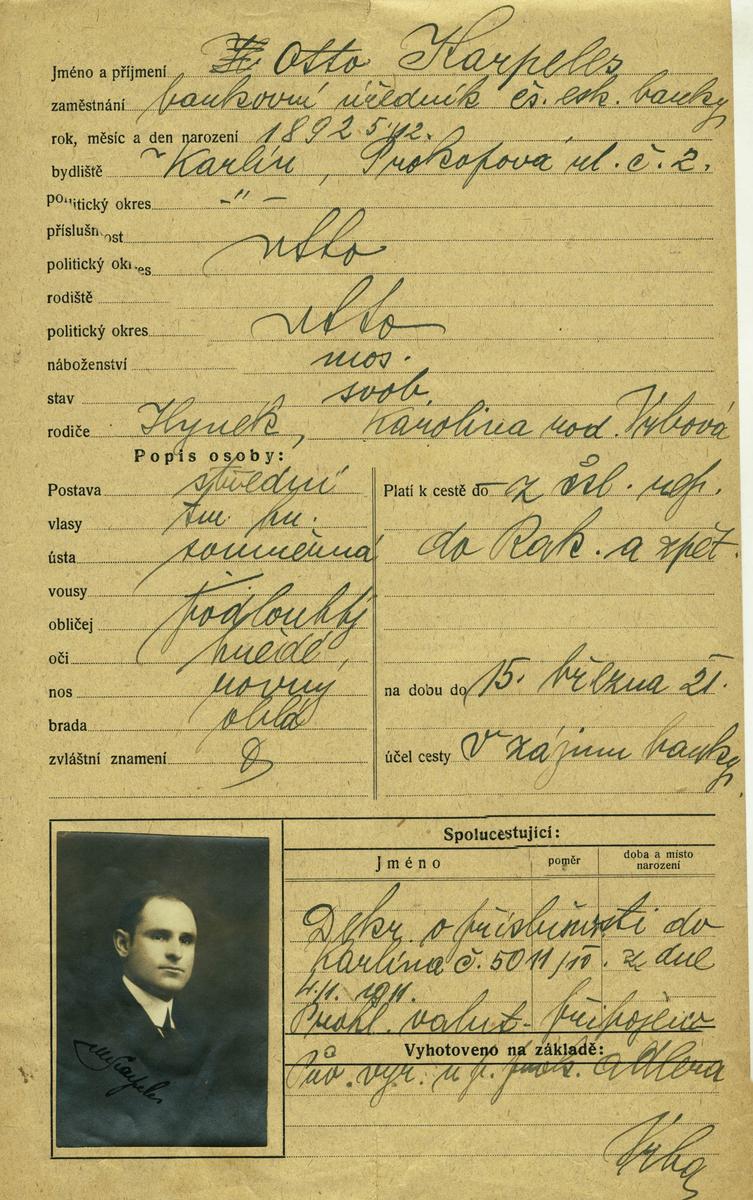 Jméno a příjmení Otto Karpeles
zaměstnání bankovní úředník čs. esk. banky
rok, měsíc a den narození 1892 5./12.
bydliště Karlín, Prokopová ul. č. 2.
politický okres -"-
příslušnost
politický okres detto
rodiště
politický okres detto
náboženství mos.
stav svob.
rodiče Hynek, Karolina rod. Vrbová
Popis osoby:
Postava střední
vlasy tm. hn.
ústa souměrná
vousy
obličej podlouhlý
oči hnědé
nos rovný
brada oblá
zvláštní znamení
Platí k cestě do z čsl. rep.
do Rak. a zpět.
na dobu do 15. března 21.
účel cesty V zájmu banky
Spolucestující:
Jméno poměr doba a místo narození
Dekr. o příslušnosti do
Karlína č. 5011/IV. ze dne
4./11. 1911.
Prohl. valut. připojeno
Vyhotoveno na základě:
Pův. vyř. u p. Adlera
Vrba
Karpeles